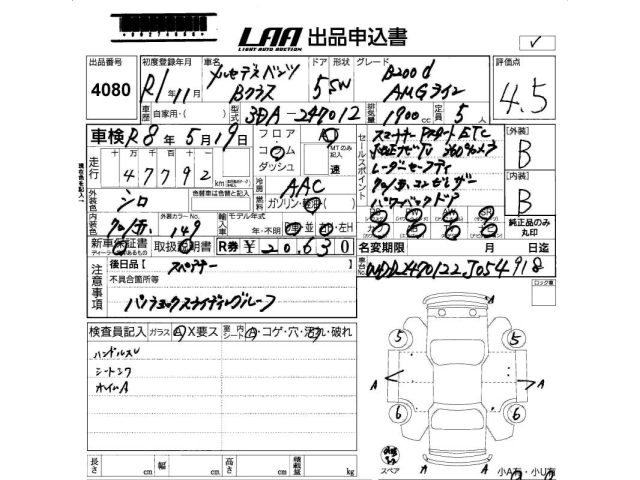 LAA 出品申込書
LIGHT AUTO AUCTION
出品番号 初度登録年月 車名 ドア 形状 グレード 評価点
4080 R1年11月 メルセデスベンツ Bクラス 5 SW B200d AMGライン 4.5
車歴 自家用・( ) 型式 3DA-247012 排気量 1900cc 定員 5人
車検 R8年5月19日 フロア コラム ダッシュ AT MTのみ記入 速
走行 十万 万 千 百 十 一
47792 km
冷房 AAC
燃料 ガソリン・軽油( )
セールスポイント
スマートキー Pスタート ETC
純正ナビTV 360°カメラ
レーダーセーフティ
クロ/赤コンビレザー
パワーバックドア
[外装] B
[内装] B
純正品のみ丸印
外装色 シロ 色替車は色替と記入
内装色 クロ/赤 外装カラーNo. 149 輸入車 モデル年式 年・不明 D車・並 右・左H
新車保証書 取扱説明用 R券 ¥20,630 名変期限 月 日迄
ディーラー印があるもの
現在色を記入
注意事項
後日品 [スペアキー]
不具合箇所等
パノラミックスライディングルーフ
車台No. WDD2470122J054918
ロック車
検査員記入 ガラス A X要ス 室内シート A・コゲ・穴・汚れ・破れ
ハンドルスレ
シートシワ
ホイルA
5 5
A A
6 6
スペア A A 小A有・小U有
長さ cm 幅 cm 高さ cm 積載量 kg